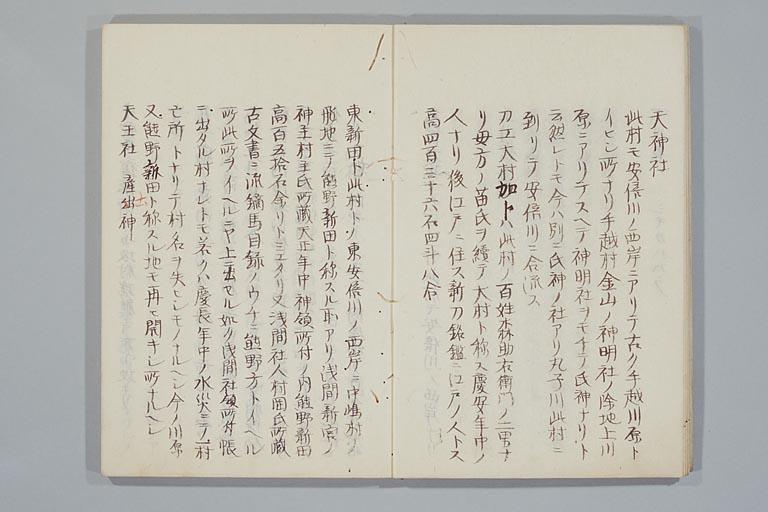 天神社
此村モ安倍川ノ西岸ニアリテ古ク手越川原ト
イヒシ所ナリ手越村金山ノ神明社ノ除地上川
原ニアリテスヘテ神明社ヲモテ氏神ナリト
云然レトモ今ハ別ニ氏神ノ社アリ丸子川此村ニ
到リテ安倍川ニ合流ス
刀工大村加卜ハ此村ノ百姓森助右衛門ノ二男ナ
リ母方ノ苗氏ヲ續テ大村ト称ス慶安年中ノ
人ナリ後江戸ニ住ス新刀銘鑑ニ江戸ノ人トス
高四百三十六石四斗八合
東新田ト此村トノ東安倍川ノ西岸ニ中嶋村ノ
飛地ニテ熊野新田ト称スル所アリ浅間新宮ノ
神主村主氏所蔵天正年中神領所付ノ内熊野新田
高百五拾石余リトミエタリ又浅間社人村岡氏所蔵
古文書ニ流鏑馬目録ノウチニ熊野方トイヘル
所此所ヲイヘルニヤ上ニ出セル如ク浅間社領所付帳
ニ出タル村ナレトモ若クハ慶長年中ノ水災ニテ一村
亡所トナリテ村名ヲ失ヒシモノナルヘシ今ノ川原
又熊野新田ト称スル地モ再ヒ開キシ所ナルヘシ
天王社 産土神